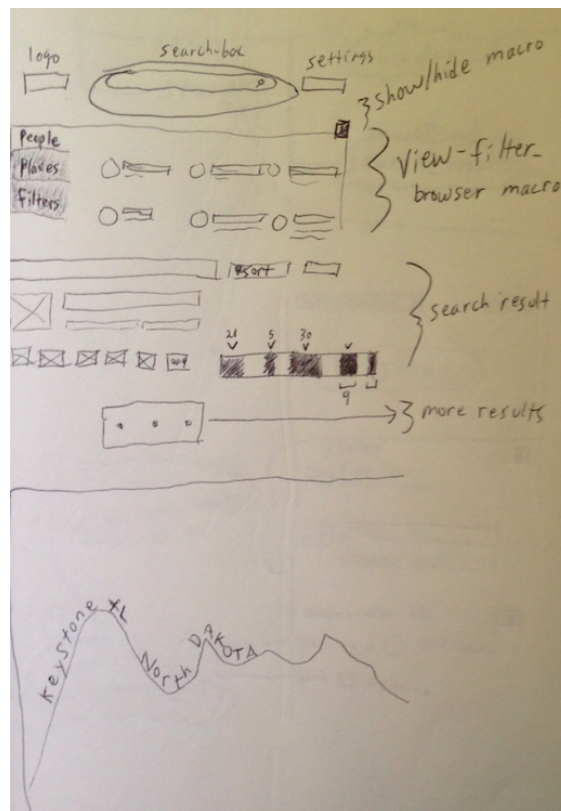 logo
search-box
settings
show/hide macro
People
Places
Filters
View-filter-
browser macro
sort
search result
21 5 30
9
more results
Keystone XL
North DAKOTA